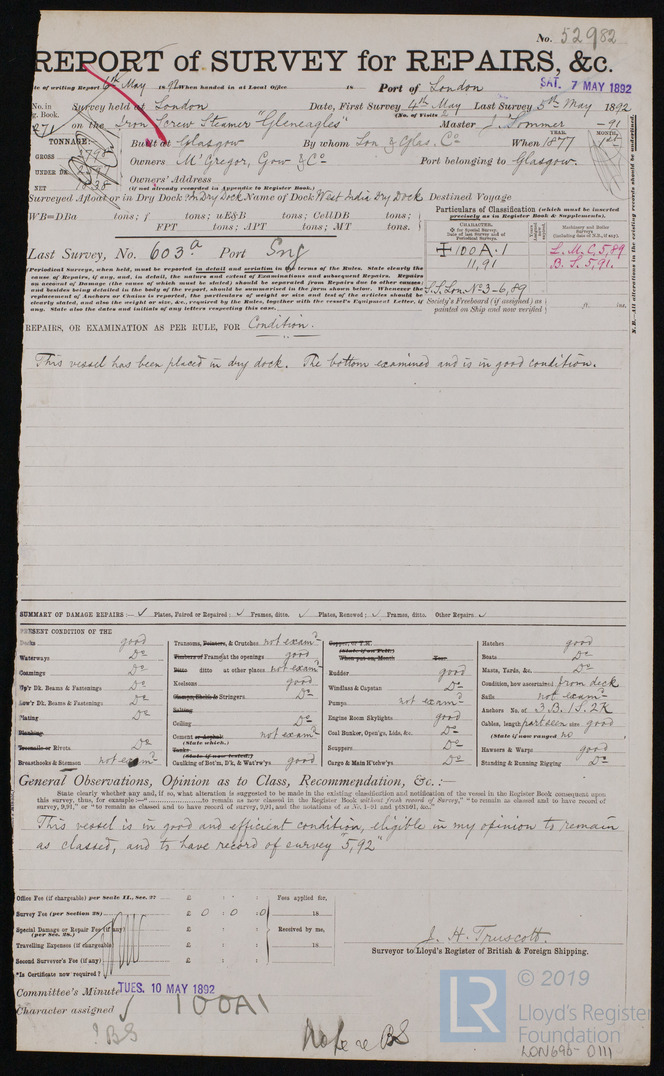 No. 52982
REPORT of SURVEY for REPAIRS, &c.
Date of writing Report 6th May 1892 When handed in at Local Office 18 Port of London
SAT. 7 MAY 1892
No. in Survey held at London Date, First Survey 4th May Last Survey 5th May 1892
Reg. Book. (No. of Visits )
271 on the Iron Screw Steamer "Gleneagles" Master J. Sommer -91
TONNAGE: Built at Glasgow By whom Lon & Glas. Co When 1877 YEAR. MONTH.
GROSS Owners McGregor, Gow & Co Port belonging to Glasgow.
UNDER DK Owners' Address
NET 1838 (if not already recorded in Appendix to Register Book.)
Surveyed Afloat or in Dry Dock In Dry Dock Name of Dock West India Dry Dock Destined Voyage
WB=DBa tons; f tons; uE&B tons; CellDB tons;
FPT tons; APT tons; MT tons.
Particulars of Classification (which must be inserted precisely as in Register Book & Supplements).
CHARACTER.
Machinery and Boiler Surveys
✠ 100A.1 L.M.C. 5,89
11,91 B.S. 5,91.
S.S. Lon. No 3-6,89
Society's Freeboard (if assigned) as painted on Ship and now verified ft. ins.
Last Survey, No. 603a Port Sng
(Periodical Surveys, when held, must be reported in detail and seriatim in the terms of the Rules. State clearly the
cause of Repairs, if any, and, in detail, the nature and extent of Examinations and subsequent Repairs. Repairs
on account of Damage (the cause of which must be stated) should be separated from Repairs due to other causes;
and besides being detailed in the body of the report, should be summarized in the form shown below. Whenever the
replacement of Anchors or Chains is reported, the particulars of weight or size and test of the articles should be
clearly stated, and also the weight or size, &c, required by the Rules, together with the vessel's Equipment Letter, if
any. State also the dates and initials of any letters respecting this case.
N.B.—All alterations in the existing records should be underlined.
REPAIRS, OR EXAMINATION AS PER RULE, FOR Condition.
This vessel has been placed in dry dock. The bottom examined and is in good condition.
SUMMARY OF DAMAGE REPAIRS — ✓ Plates, Faired or Repaired: ✓ Frames, ditto. ✓ Plates, Renewed; ✓ Frames, ditto. Other Repairs ✓
PRESENT CONDITION OF THE
Decks good
Waterways Do
Coamings Do
Up'r Dk. Beams & Fastenings Do
Low'r Dk. Beams & Fastenings Do
Plating Do
Planking
Treenails or Rivets. Do
Breasthooks & Stemson not examd
Transoms, Pointers, & Crutches not examd
Timbers or Frames at the openings good
Ditto ditto at other places not examd
Keelsons good
Clamps, Shelfs & Stringers. Do
Salting
Ceiling Do
Cement or Asphalt not examd
(State which.)
Tanks
(State if now tested.)
Caulking of Bot'm, D'k, & Wat'rw'ys good
Copper, or Y.M.
(State if on Felt.)
When put on, Month Year.
Rudder good
Windlass & Capstan Do
Pumps not examd
Engine Room Skylights good
Coal Bunker, Open'gs, Lids, &c. Do
Scuppers Do
Cargo & Main H'tchw'ys Do
Hatches good
Boats Do
Masts, Yards, &c. Do
Condition, how ascertained from deck
Sails not examd
Anchors No. of 3B. 1S. 2K
Cables, length part seen size good
(State if now ranged no
Hawsers & Warps good
Standing & Running Rigging Do
General Observations, Opinion as to Class, Recommendation, &c.:—
State clearly whether any, and if, so, what alteration is suggested to be made in the existing classification and notification of the vessel in the Register Book consequent upon
this survey, thus, for example:—"..............to remain as now classed in the Register Book without fresh record of Survey," "to remain as classed and to have record of
survey, 9,91," or "to remain as classed and to have record of survey, 9,91, and the notations of ss No. 1-91 and ptNDB1, &c."
This vessel is in good and efficient condition, eligible in my opinion to remain
as classed, and to have record of survey "5,92"
Office Fee (if chargeable) per Scale II., Sec. 27 £ : :
Survey Fee (per Section 28) £ 0 : 0 : 0
Special Damage or Repair Fee (if any) £ : :
(per Sec. 28.)
Travelling Expenses (if chargeable) £ : :
Second Surveyor's Fee (if any) £ : :
*Is Certificate now required?
Fees applied for,
18
Received by me,
18
J. H. Truscott.
Surveyor to Lloyd's Register of British & Foreign Shipping.
Committee's Minute TUES. 10 MAY 1892
Character assigned 100A1
? BS
Note re BS
LR © 2019
Lloyd's Register
Foundation
LON696-0111